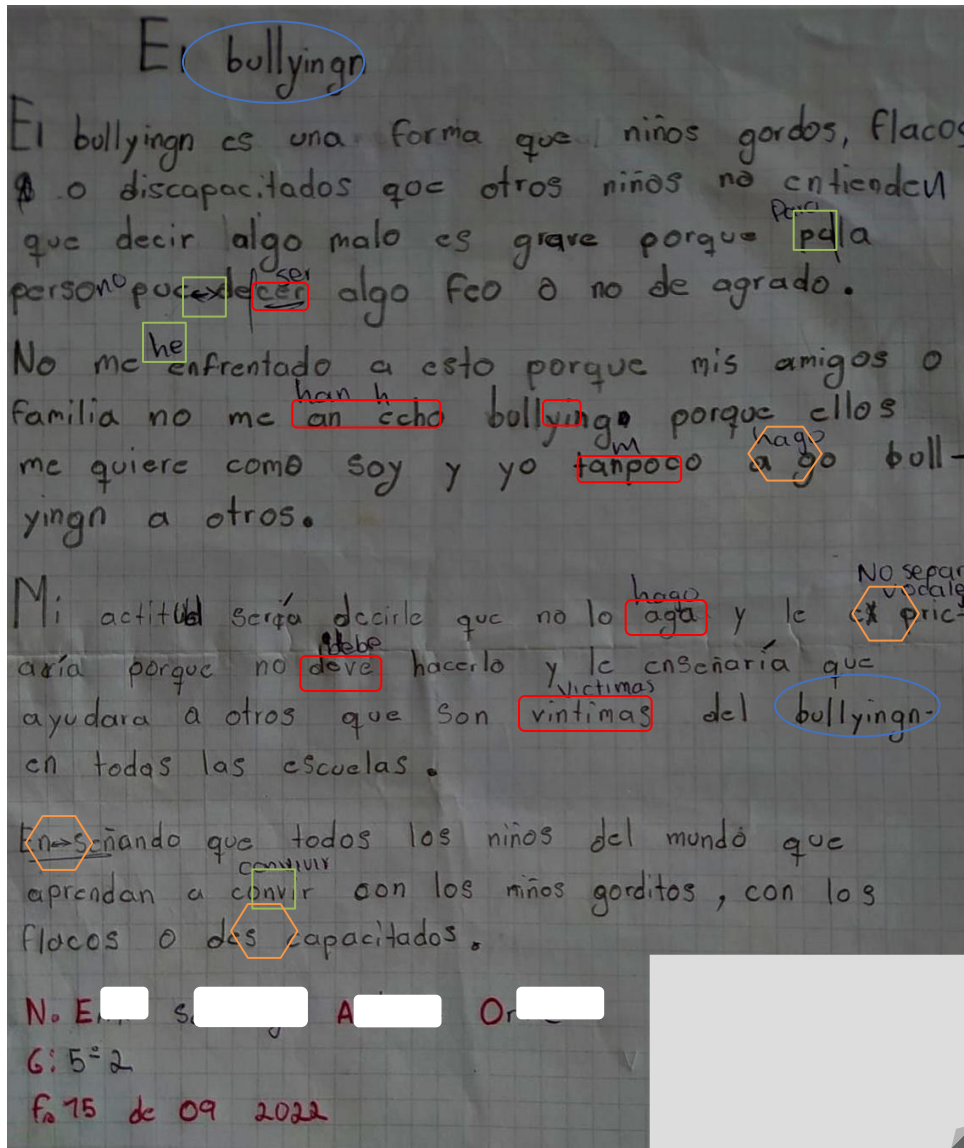 El bullyingn
El bullyingn es una forma que niños gordos, flacos
o discapacitados que otros niños no entienden
para
que decir algo malo es grave porque pala
ser
persono puc↔de cer algo feo o no de agrado.
he
No me enfrentado a esto porque mis amigos o
han h
familia no me an echo bullying porque ellos
m hago
me quiere como soy y yo tanpoco a go bull-
yingn a otros.
No separ
hago vocale
Mi actitud sería decirle que no lo aga y le ex prict
debe
aría porque no deve hacerlo y le enseñaría que
victimas
ayudara a otros que son vintimas del bullyingn-
en todas las escuelas.
En↔señando que todos los niños del mundo que
convivir
aprendan a convir con los niños gorditos, con los
flacos o des capacitados.
N. E. S A Or
G: 5=2
f. 15 de 09 2022